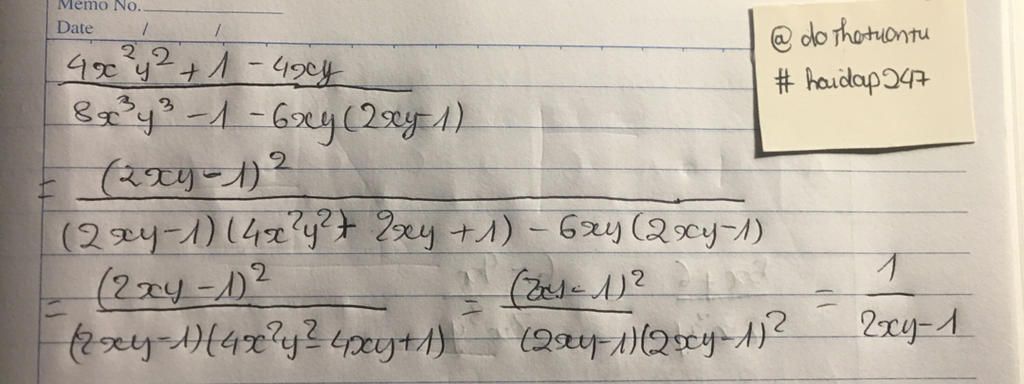 Memo No.
Date / /
@ dothotuontu
# hoidap247
4x²y² + 1 - 4xy
8x³y³ - 1 - 6xy(2xy-1)
= (2xy-1)²
(2xy-1)(4x²y² + 2xy + 1) - 6xy(2xy-1)
= (2xy-1)² = (2xy-1)² = 1
(2xy-1)(4x²y² - 4xy+1) (2xy-1)(2xy-1)² 2xy-1